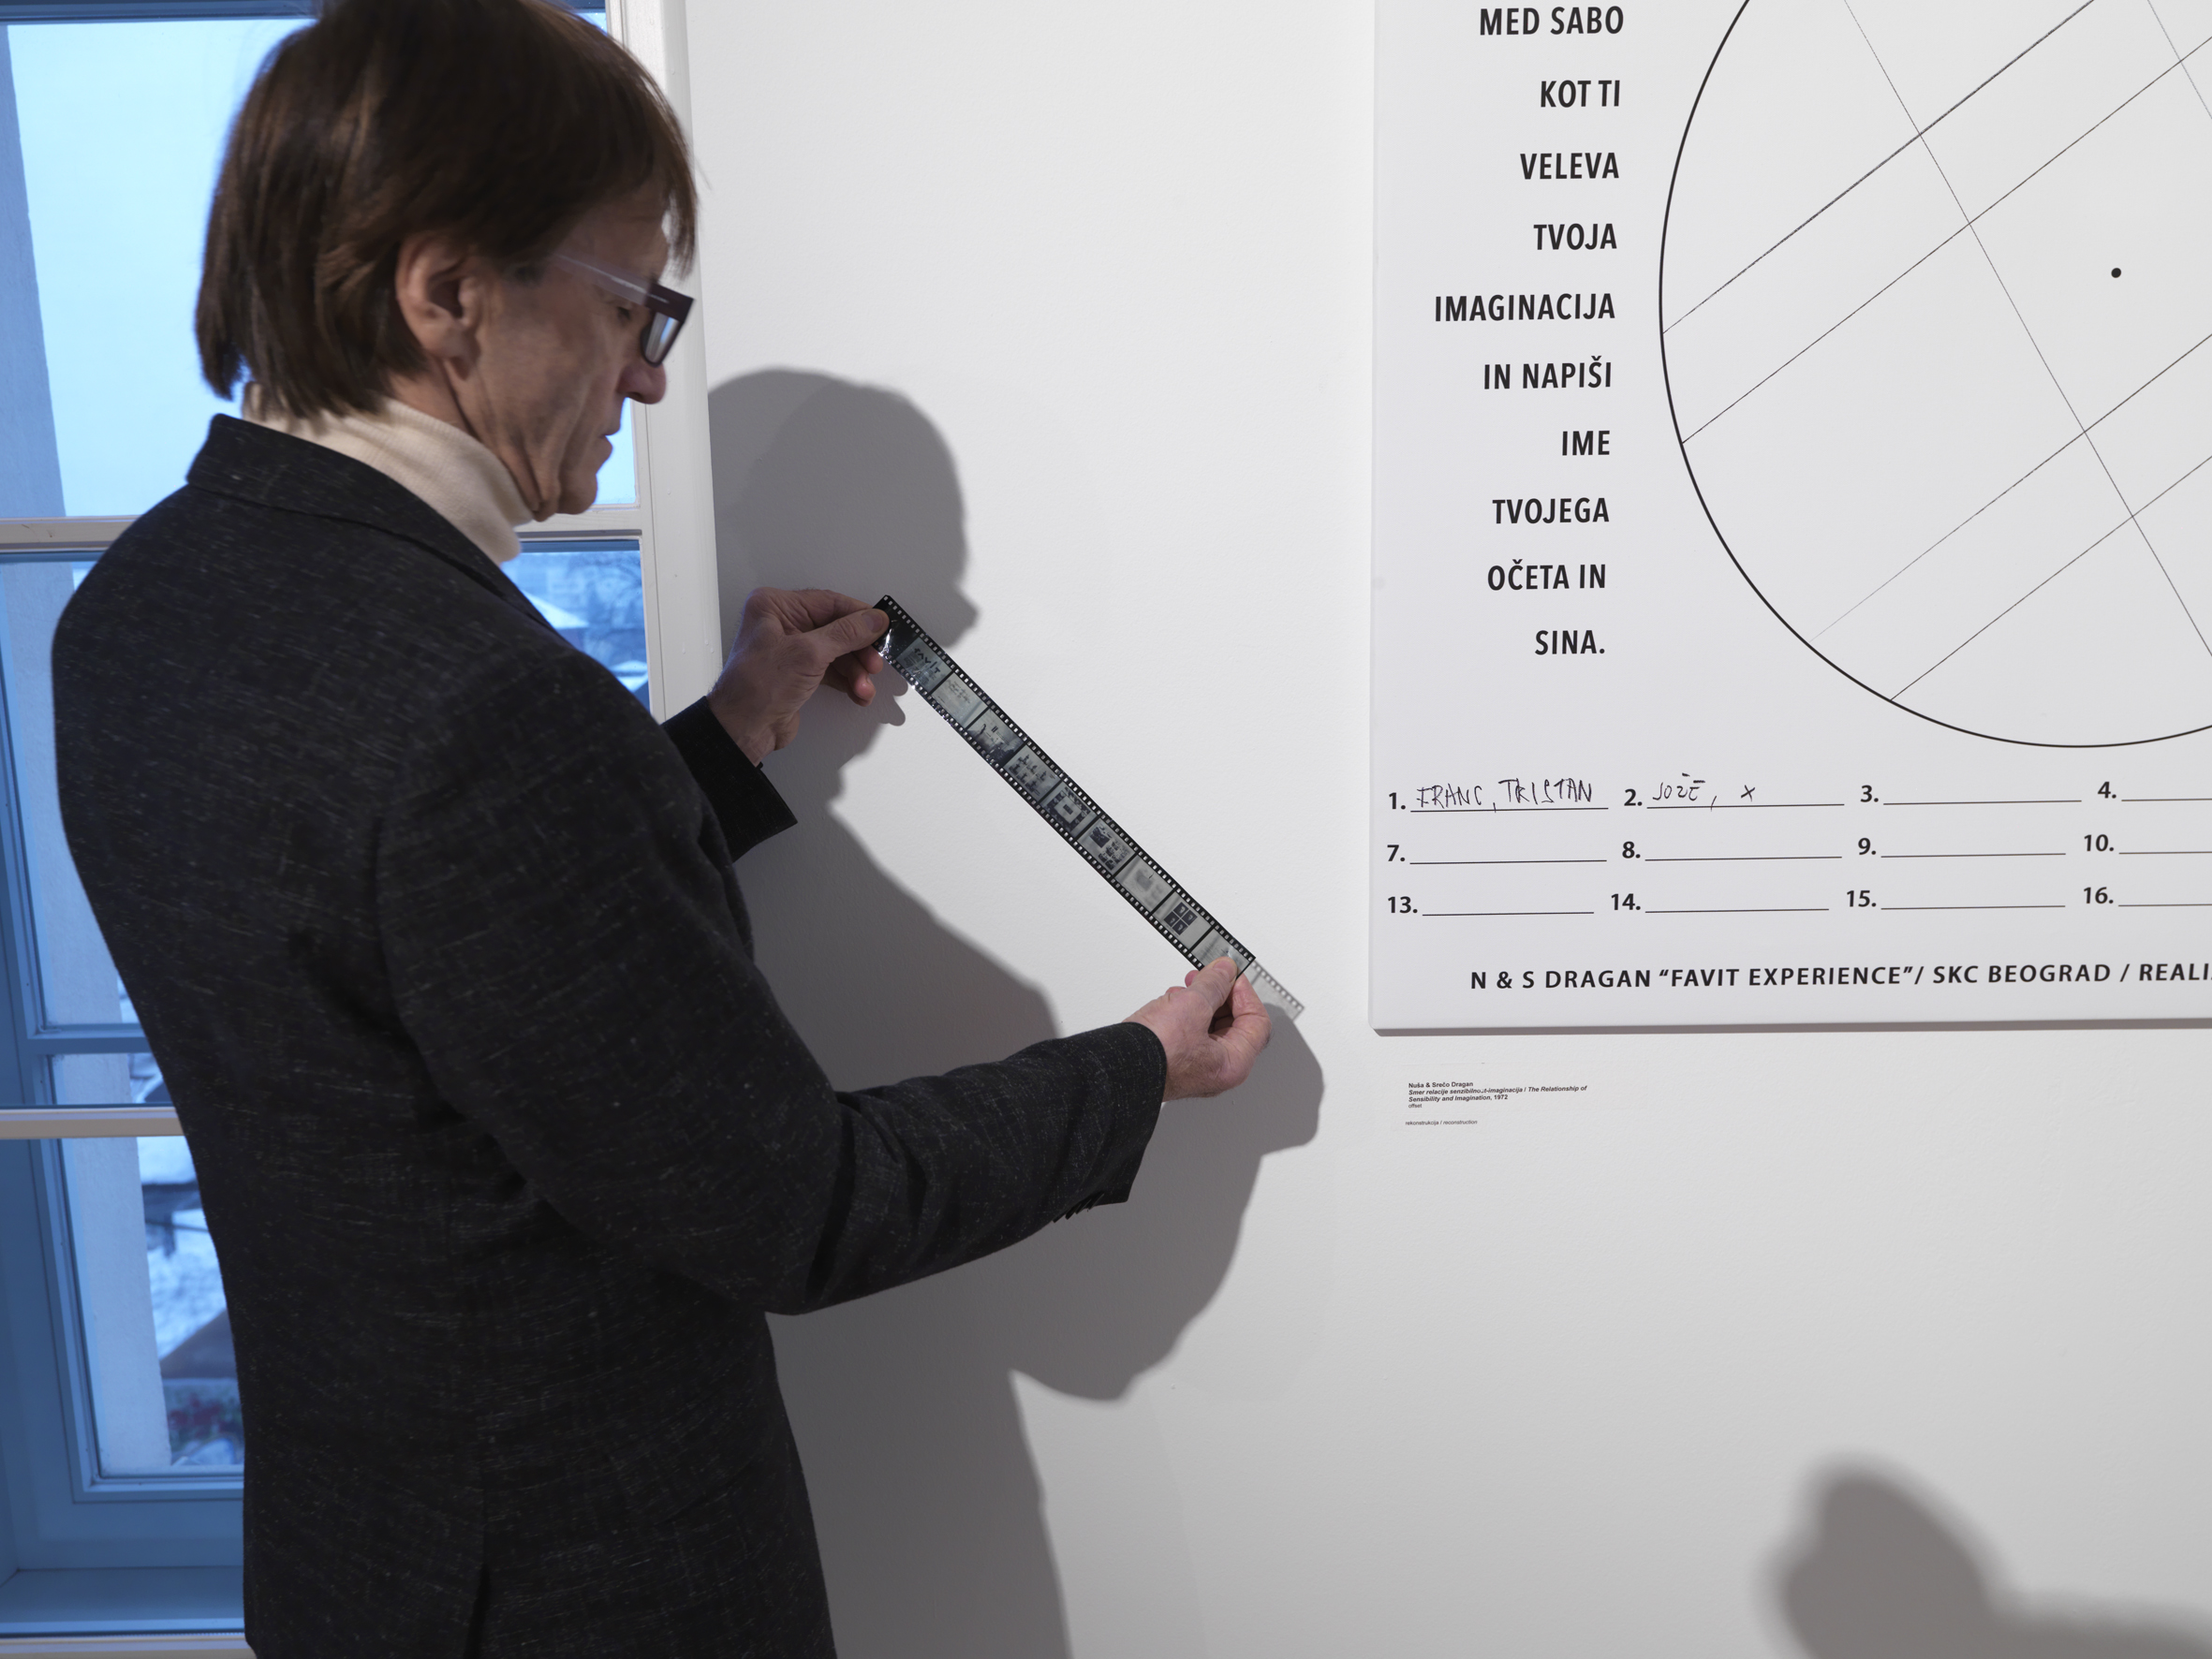 MED SABO
KOT TI
VELEVA
TVOJA
IMAGINACIJA
IN NAPIŠI
IME
TVOJEGA
OČETA IN
SINA.
1. FRANC, TRISTAN 2. JOŽE, x 3. 4.
7. 8. 9. 10.
13. 14. 15. 16.
N & S DRAGAN “FAVIT EXPERIENCE”/ SKC BEOGRAD / REALI
Nuša & Srečo Dragan
Smer relacije senzibilnost-imaginacija / The Relationship of
Sensibility and Imagination, 1972
offset
rekonstrukcija / reconstruction